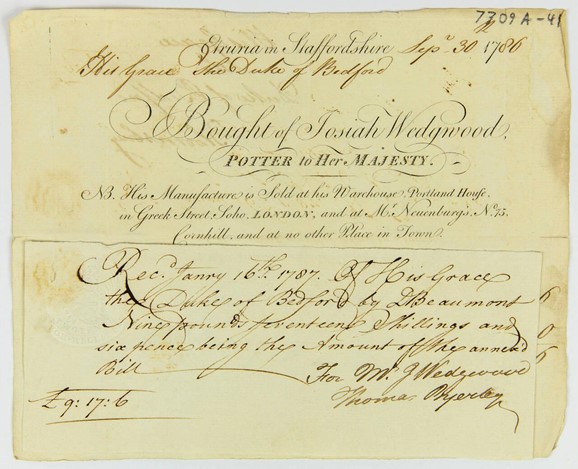 7309A-41
Etruria in Staffordshire Sepr. 30th 1786
His Grace The Duke of Bedford
Bought of Josiah Wedgwood,
POTTER to Her MAJESTY.
NB. His Manufacture is Sold at his Warehouse, Portland House,
in Greek Street, Soho, LONDON, and at Mr. Neuenburg's, No. 75,
Cornhill, and at no other Place in Town.
Recd. Janry 16th. 1787. Of His Grace
the Duke of Bedford by D Beaumont 6
Nine pounds seventeen Shillings and 0
six pence being the Amount of the annex'd 6
Bill
For Mr. J Wedgwood
£9:17:6
Thomas Byerley